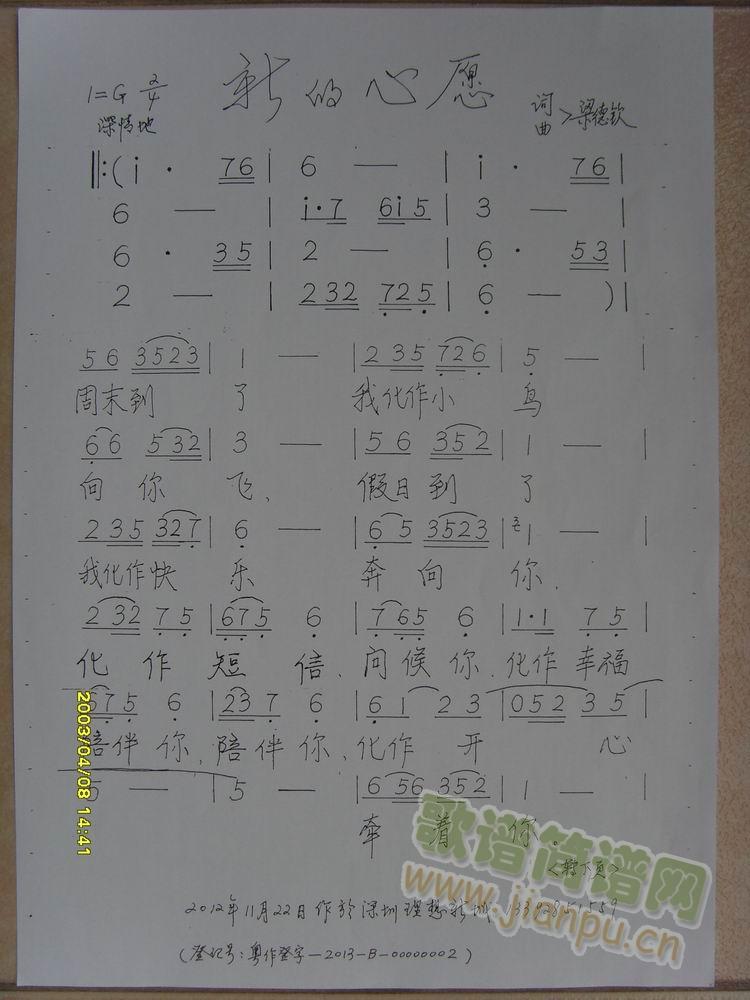 新的心愿
1=G 2/4
深情地
词
曲 > 梁德钦
‖:( i · 76 | 6 — | i · 76 |
6 — | i·7 6i5 | 3 — |
6 · 35 | 2 — | 6 · 53 |
2 — | 232 725 | 6 — ) |
56 3523 | 1 — | 235 726 | 5 — |
周末到 了 我化作小 鸟
66 532 | 3 — | 56 352 | 1 — |
向你 飞、 假日到 了
235 327 | 6 — | 65 3523 | 1 — |
我化作快 乐 奔向 你.
232 75 | 675 6 | 765 6 | 1·1 75 |
化作短信、问候你、化作幸福
675 6 | 237 6 | 61 23 | 052 35 |
陪伴你、陪伴你、化作开 心
5 — | 5 — | 656 352 | 1 — |
牵着 你.
<转下页>
2012年11月22日作於深圳理想新城 13392851559
(登记号:粤作登字—2013—B—00000002)
2003/04/08 14:41
歌谱简谱网
www.jianpu.cn